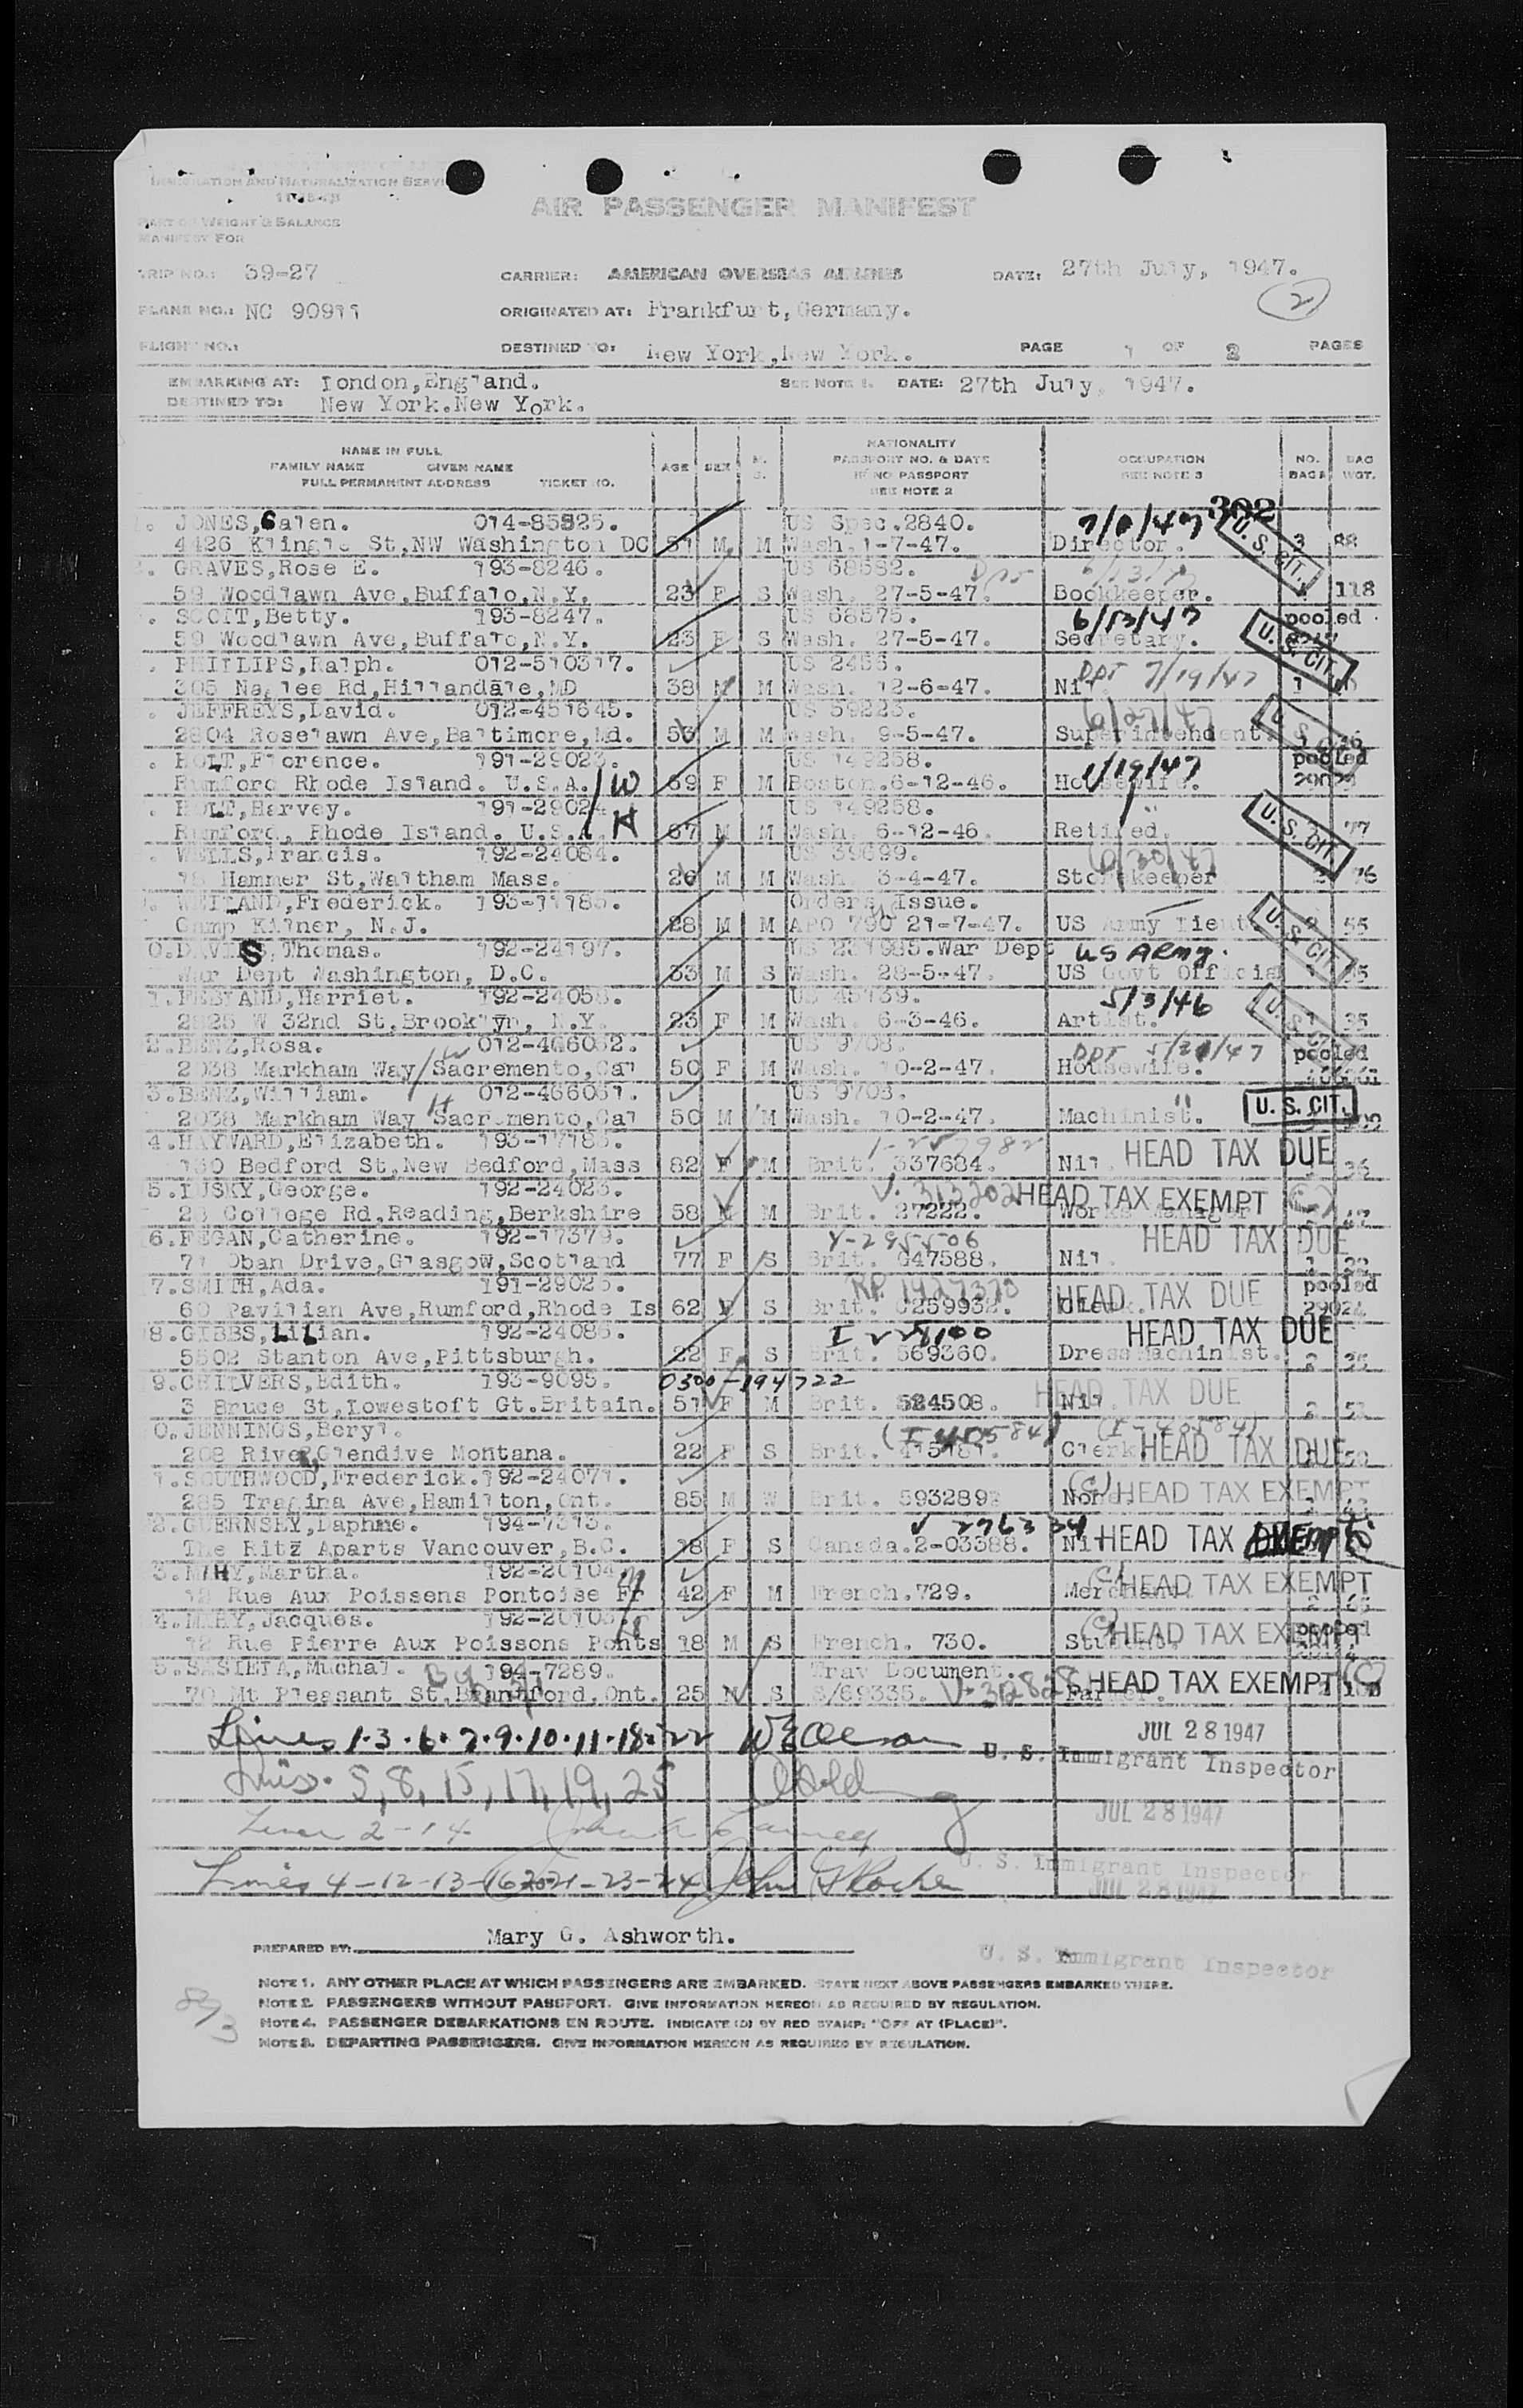 IMMIGRATION AND NATURALIZATION SERVI
AIR PASSENGER MANIFEST
PART OF WEIGHT & BALANCE
MANIFEST FOR
TRIP NO.: 39-27 CARRIER: AMERICAN OVERSEAS AIRLINES DATE: 27th July, 1947.
(2)
PLANE NO.: NC 90911 ORIGINATED AT: Frankfurt, Germany.
FLIGHT NO.: DESTINED TO: New York, New York. PAGE 1 OF 2 PAGES
EMBARKING AT: London, England. SEE NOTE 1. DATE: 27th July, 1947.
DESTINED TO: New York. New York.
NAME IN FULL NATIONALITY
FAMILY NAME GIVEN NAME AGE SEX M. S. PASSPORT NO. & DATE OCCUPATION NO. BAGS BAG WGT.
FULL PERMANENT ADDRESS TICKET NO. IF NO PASSPORT SEE NOTE 3
SEE NOTE 2
302
JONES, Galen. 014-85825. US Spec. 2840. U. S. CIT.
4426 Klingle St, NW Washington DC 51 M M Wash. 1-7-47. Director. 3 88
GRAVES, Rose E. 193-8246. US 68582.
59 Woodlawn Ave, Buffalo, N.Y. 23 F S Wash. 27-5-47. Bookkeeper. 118
SCOTT, Betty. 193-8247. US 68575. 6/13/47 pooled
59 Woodlawn Ave, Buffalo, N.Y. 23 F S Wash. 27-5-47. Secretary. U. S. CIT.
PHILLIPS, Ralph. 012-510317. US 2456. DPT 7/19/47
305 Naglee Rd, Hillandale, MD 38 M M Wash. 12-6-47. Nil. 1
JEFFREYS, David. 012-451645. US 59223. 6/27/47
2804 Roselawn Ave, Baltimore, Md. 53 M M Wash. 9-5-47. Superintendent.
HOLT, Florence. 191-29023. US 149258. 1/19/47 pooled
Rumford Rhode Island. U.S.A. W 69 F M Boston. 6-12-46. Housewife.
HOLT, Harvey. 191-29024 US 149258. "
Rumford, Rhode Island. U.S.A. H 67 M M Wash. 6-12-46. Retired. U. S. CIT. 77
WELLS, Francis. 192-24084. US 39699. 6/30/47
18 Hammer St, Waltham Mass. 26 M M Wash. 3-4-47. Storekeeper 2 76
WEILAND, Frederick. 193-11785. Orders Issue.
Camp Kilner, N.J. 28 M M APO 790 21-7-47. US Army Lieut. 55
DAVIS, Thomas. 192-24197. War Dept US ARMY.
War Dept Washington, D.C. 33 M S Wash. 28-5-47. US Govt Official
Harriet. 192-24058. US 45739. 5/3/46
2825 W 32nd St, Brooklyn, N.Y. 23 F M Wash. 6-3-46. Artist. 1 35
BENZ, Rosa. 012-466062. US 9708. DPT 5/21/47 pooled
2038 Markham Way Sacremento, Cal W 50 F M Wash. 10-2-47. Housewife.
BENZ, William. 012-466061. US 9708. "
2038 Markham Way Sacremento, Cal H 50 M M Wash. 10-2-47. Machinist. U. S. CIT.
HAYWARD, Elizabeth. 193-11785.
130 Bedford St, New Bedford, Mass 82 F M Brit. 337684. Nil. HEAD TAX DUE 36
LUSKY, George. 192-24023. V. 313202 HEAD TAX EXEMPT
23 College Rd, Reading, Berkshire 58 M M Brit. 27222. Works Manager 47
FEGAN, Catherine. 192-17379. V-295506 HEAD TAX DUE
71 Oban Drive, Glasgow, Scotland 77 F S Brit. G47588. Nil.
SMITH, Ada. 191-29025. RP. 1427370 HEAD TAX DUE pooled
60 Pavilian Ave, Rumford, Rhode Is 62 F S Brit. C259932. Clerk. 29024
GIBBS, Lilian. 192-24085. HEAD TAX DUE
5502 Stanton Ave, Pittsburgh. 22 F S Brit. 569360. Dress Machinist. 2
CHILVERS, Edith. 193-9095. 0300-194722 HEAD TAX DUE
3 Bruce St, Lowestoft Gt. Britain. 51 F M Brit. 524508. Nil. 2
JENNINGS, Beryl. (I-40584)
208 River, Glendive Montana. 22 F S Brit. Clerk HEAD TAX DUE
SOUTHWOOD, Frederick. 192-24071. (C) HEAD TAX EXEMPT
285 Tragina Ave, Hamilton, Ont. 85 M W Brit. 5932892 None.
GUERNSEY, Daphne. 194-7313. V 276334
The Ritz Aparts Vancouver, B.C. 18 F S Canada. 2-03388. Nil HEAD TAX Exempt
MAHY, Martha. 192-20104. (C) HEAD TAX EXEMPT
12 Rue Aux Poissens Pontoise Fr 42 F M French. 729. Merchant.
MAHY, Jacques. 192-20105. (C) HEAD TAX EXEMPT pooled
12 Rue Pierre Aux Poissons Ponts 18 M S French. 730. Student.
SASIETA, Muchal. 194-7289. Trav Document.
70 Mt Pleasant St, Brantford, Ont. 25 M S S/69335. Farmer. HEAD TAX EXEMPT (C)
Lines 1.3.6.7.9.10.11.18.22 W E Olerson JUL 28 1947
U. S. Immigrant Inspector
Lines 5, 8, 15, 17, 19, 25
JUL 28 1947
Lines 2-14
U. S. Immigrant Inspector
Lines 4-12-13-16-20-21-23-24 John G Roche JUL 28 1947
PREPARED BY: Mary G. Ashworth.
U. S. Immigrant Inspector
NOTE 1. ANY OTHER PLACE AT WHICH PASSENGERS ARE EMBARKED. STATE NEXT ABOVE PASSENGERS EMBARKED THERE.
NOTE 2. PASSENGERS WITHOUT PASSPORT. GIVE INFORMATION HEREON AS REQUIRED BY REGULATION.
NOTE 4. PASSENGER DEBARKATIONS EN ROUTE. INDICATE (D) BY RED STAMP: "OFF AT (PLACE)".
NOTE 3. DEPARTING PASSENGERS. GIVE INFORMATION HEREON AS REQUIRED BY REGULATION.